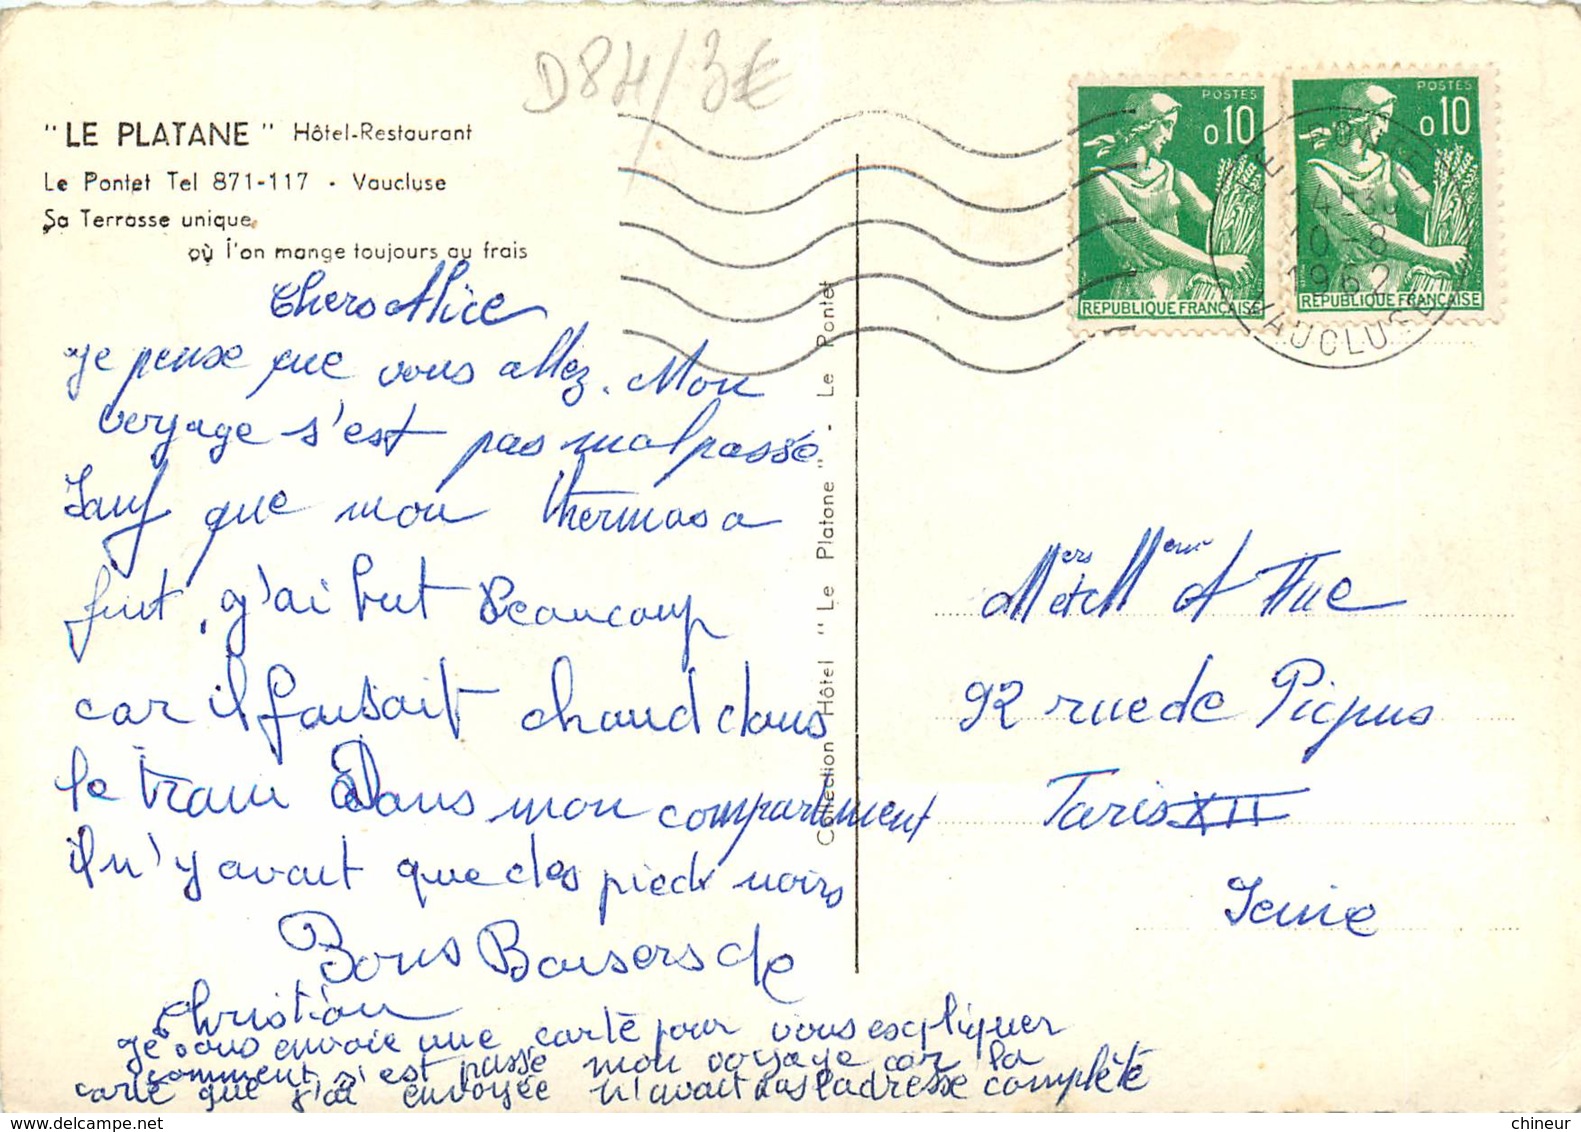 D84/3€
"LE PLATANE" Hôtel-Restaurant
Le Pontet Tel 871-117 - Vaucluse
Sa Terrasse unique
où l'on mange toujours au frais
Chers Alice
Je pense que vous allez. Mon
voryage s'est pas mal passé
Sauf que mon thermos a
fuit, j'ai but Beaucoup
car il faisait chaud dans
le train Dans mon compartiment
il n'y avait que des pieds noirs
Bons Baisers de
Christian
Je vous envoie une carte pour vous escpliquer
comment s'est passé mon voyage car la
carte que j'ai envoyée n'avait pas l'adresse complète
Collection Hôtel "Le Platane" - Le Pontet
POSTES
0,10
REPUBLIQUE FRANÇAISE
POSTES
0,10
REPUBLIQUE FRANÇAISE
LE PONTET
10-8
1962
VAUCLUSE
Mers et Meme
92 rue de Picpus
Paris XII
Seine
chineur